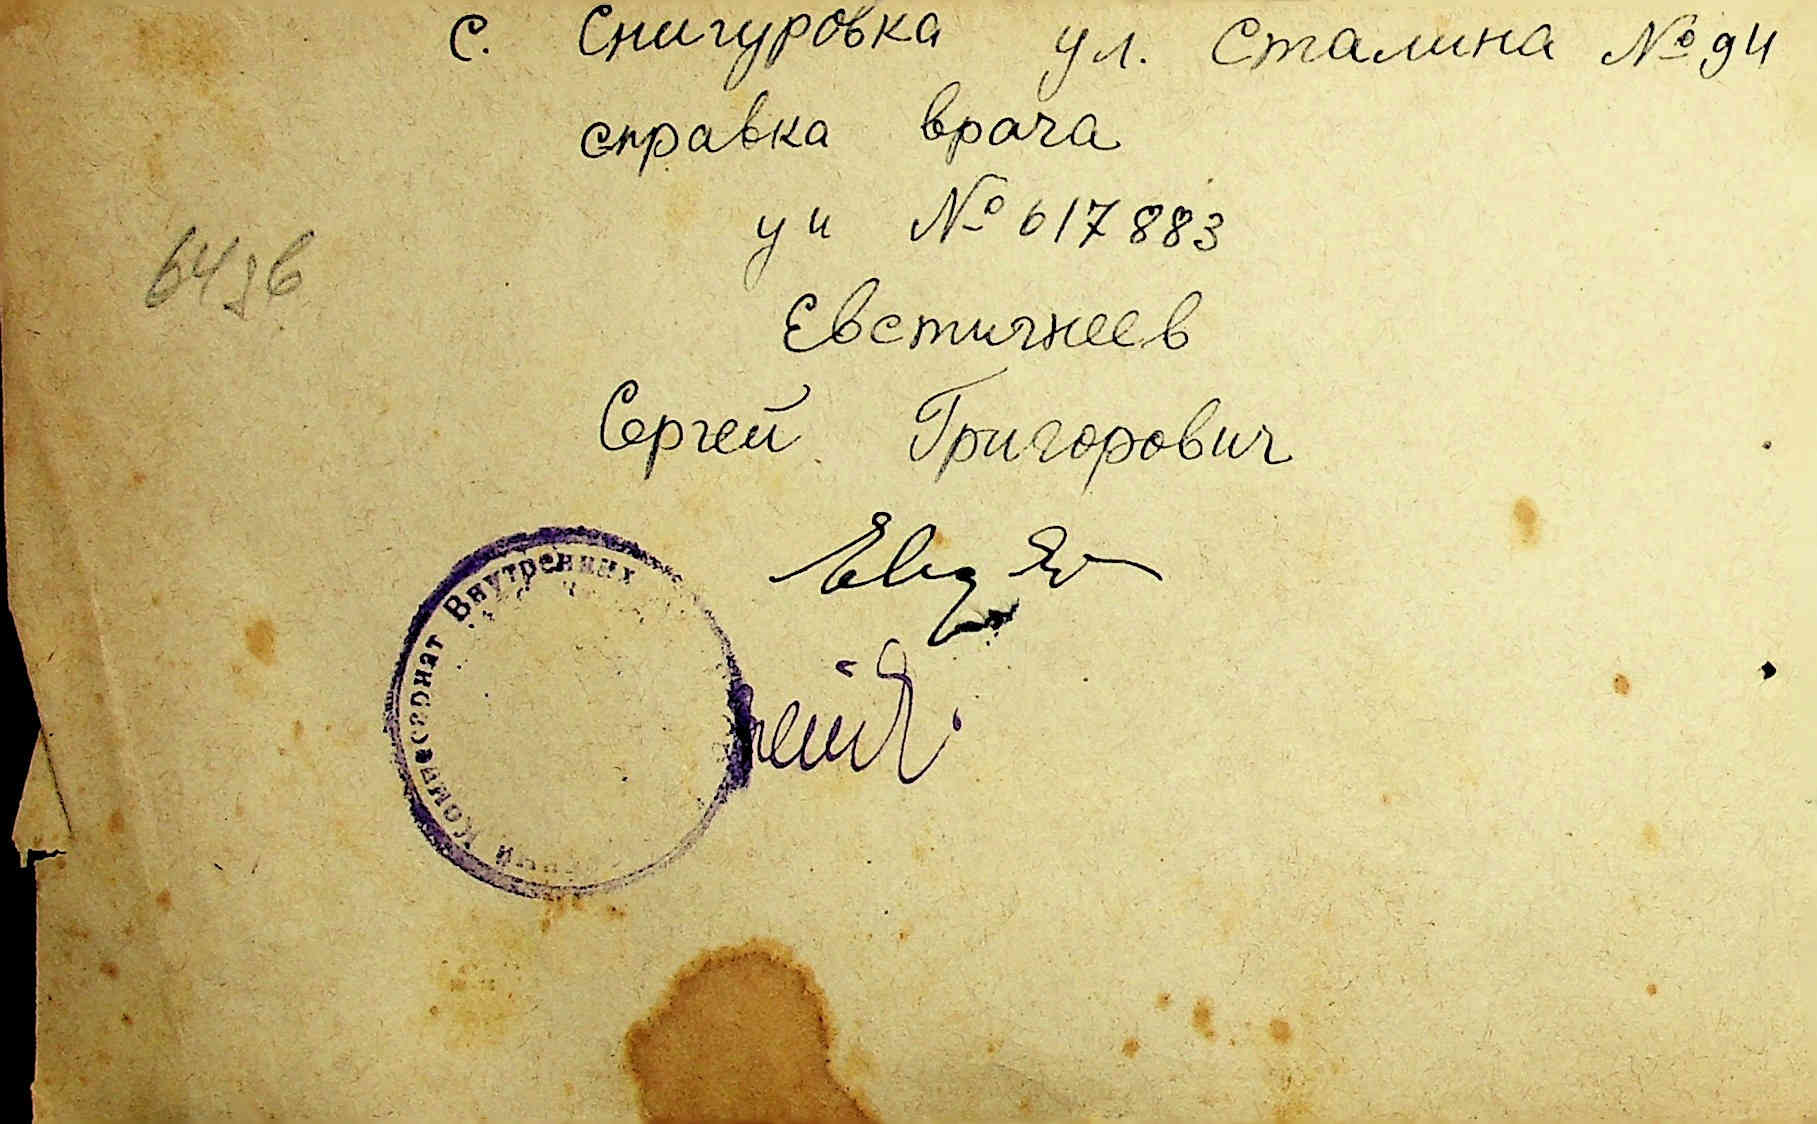 с. Снигуровка ул. Сталина № 94
справка врача
уи № 617883
Евстигнеев
Сергей Григорович
Комиссариат Внутренних